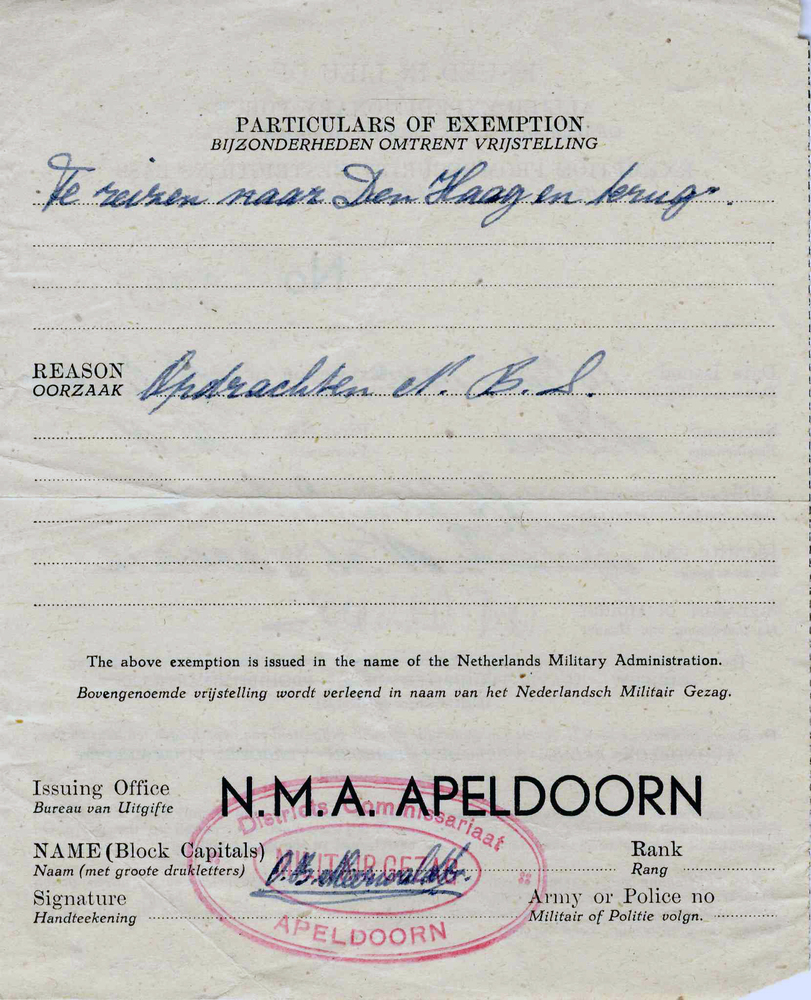 PARTICULARS OF EXEMPTION
BIJZONDERHEDEN OMTRENT VRIJSTELLING
Te reizen naar Den Haag en terug.
REASON
OORZAAK
Opdrachten N. B. S.
The above exemption is issued in the name of the Netherlands Military Administration.
Bovengenoemde vrijstelling wordt verleend in naam van het Nederlandsch Militair Gezag.
Issuing Office
Bureau van Uitgifte
N.M.A. APELDOORN
Districts Commissariaat
MILITAIR GEZAG
APELDOORN
NAME (Block Capitals)
Naam (met groote drukletters)
Rank
Rang
Signature
Handteekening
Army or Police no
Militair of Politie volgn.